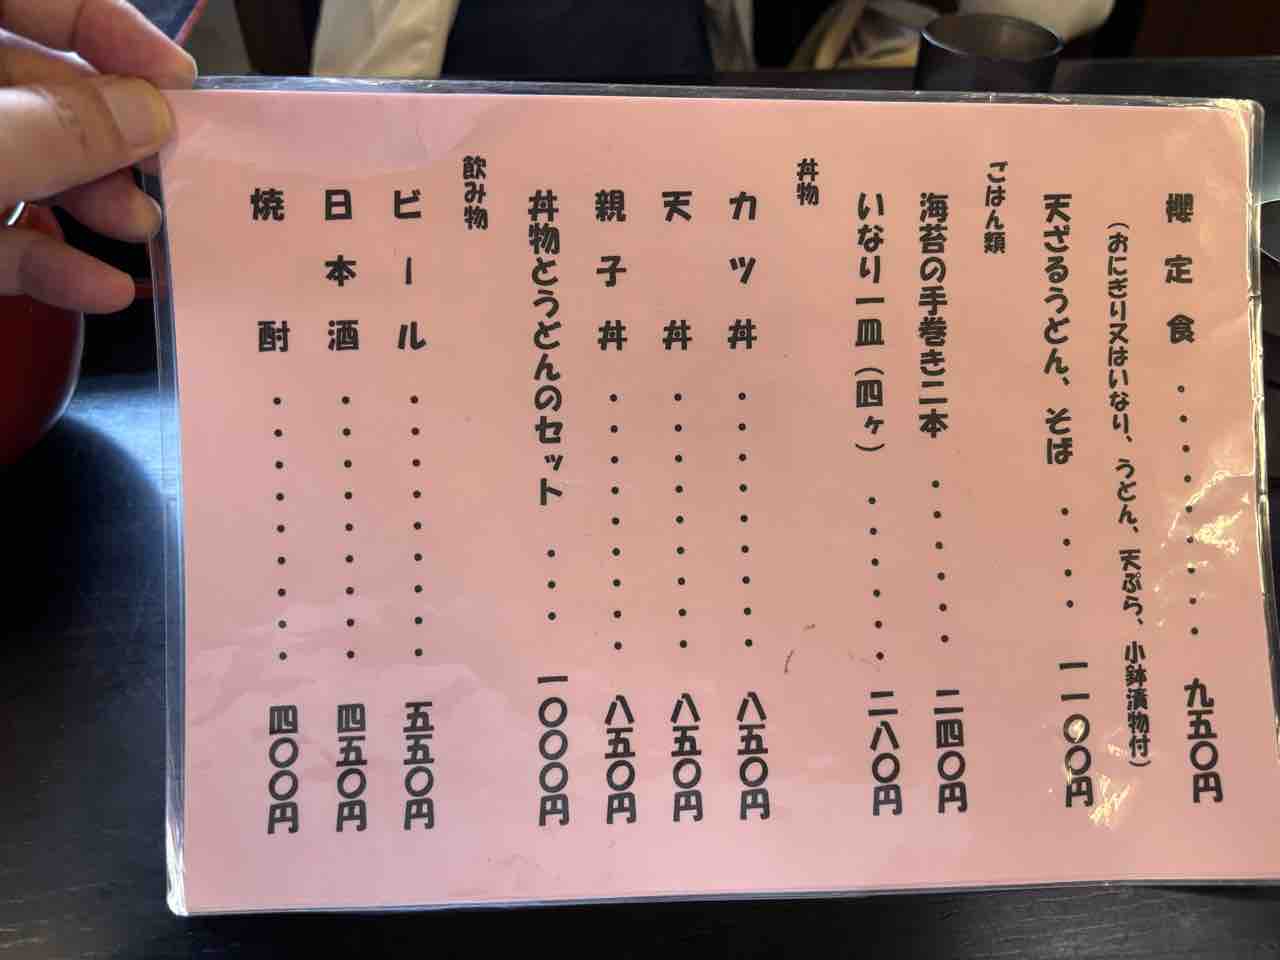 櫻定食・・・・・・・・・九五〇円
（おにぎり又はいなり、うどん、天ぷら、小鉢漬物付）
天ざるうどん、そば・・・・一一〇〇円
ごはん類
海苔の手巻き二本・・・・・・二四〇円
いなり一皿（四ヶ）・・・・・・二八〇円
丼物
カツ丼・・・・・・・・・八五〇円
天丼・・・・・・・・・八五〇円
親子丼・・・・・・・・・八五〇円
丼物とうどんのセット・・・一〇〇〇円
飲み物
ビール・・・・・・・・・五五〇円
日本酒・・・・・・・・・四五〇円
焼酎・・・・・・・・・四〇〇円